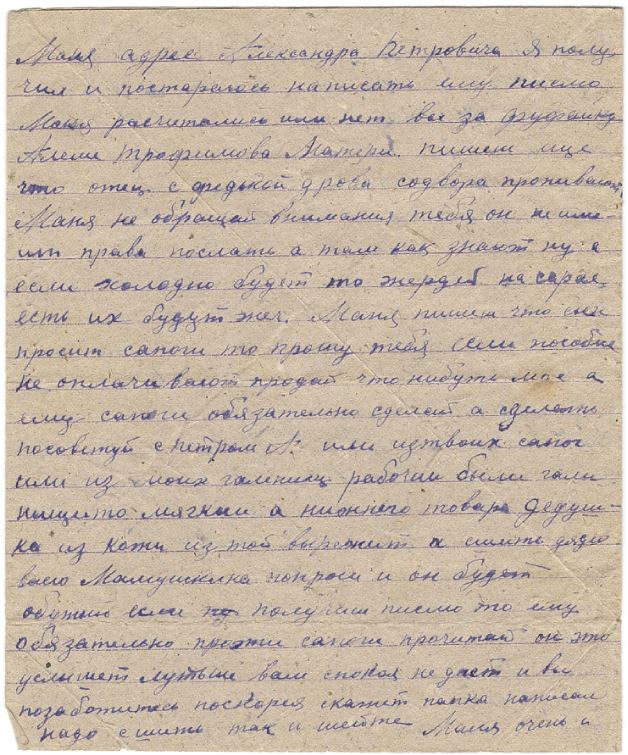 Маня адрес Александра Петровича я полу
чил и постараюсь написать ему письмо
Маня расчитались или нет вы за фуфайку
Трофимова Матери. пишеш ище
что отец с федькой дрова содвора пропивают
Маня не обращай внимания тебя он не име-
ит права послать а там как знают ну а
если холодно будет то жердей на сарае
есть их будут жеч. Маня пишеш что сын
просит сапоги то прошу тебя если пособие
не оплачивают продай что нибуть мое а
ему сапоги обязательно сделай а сделать
посоветуй с Петром А. или из твоих сапог
или из моих галенищ рабочии были гале
нищито мягкии а нижнего товара Дедуш-
ка из кожи из той вырежит а сшить дядю
Васю Мамушкина попроси и он будет
обутый если получиш писмо то ему
обязательно прочти сапоги прочитай он это
услышет лутьше вам спокоя не даст и вы
позаботитесь поскорея скажет папка написал
надо сшить так и шейте Маня очень и